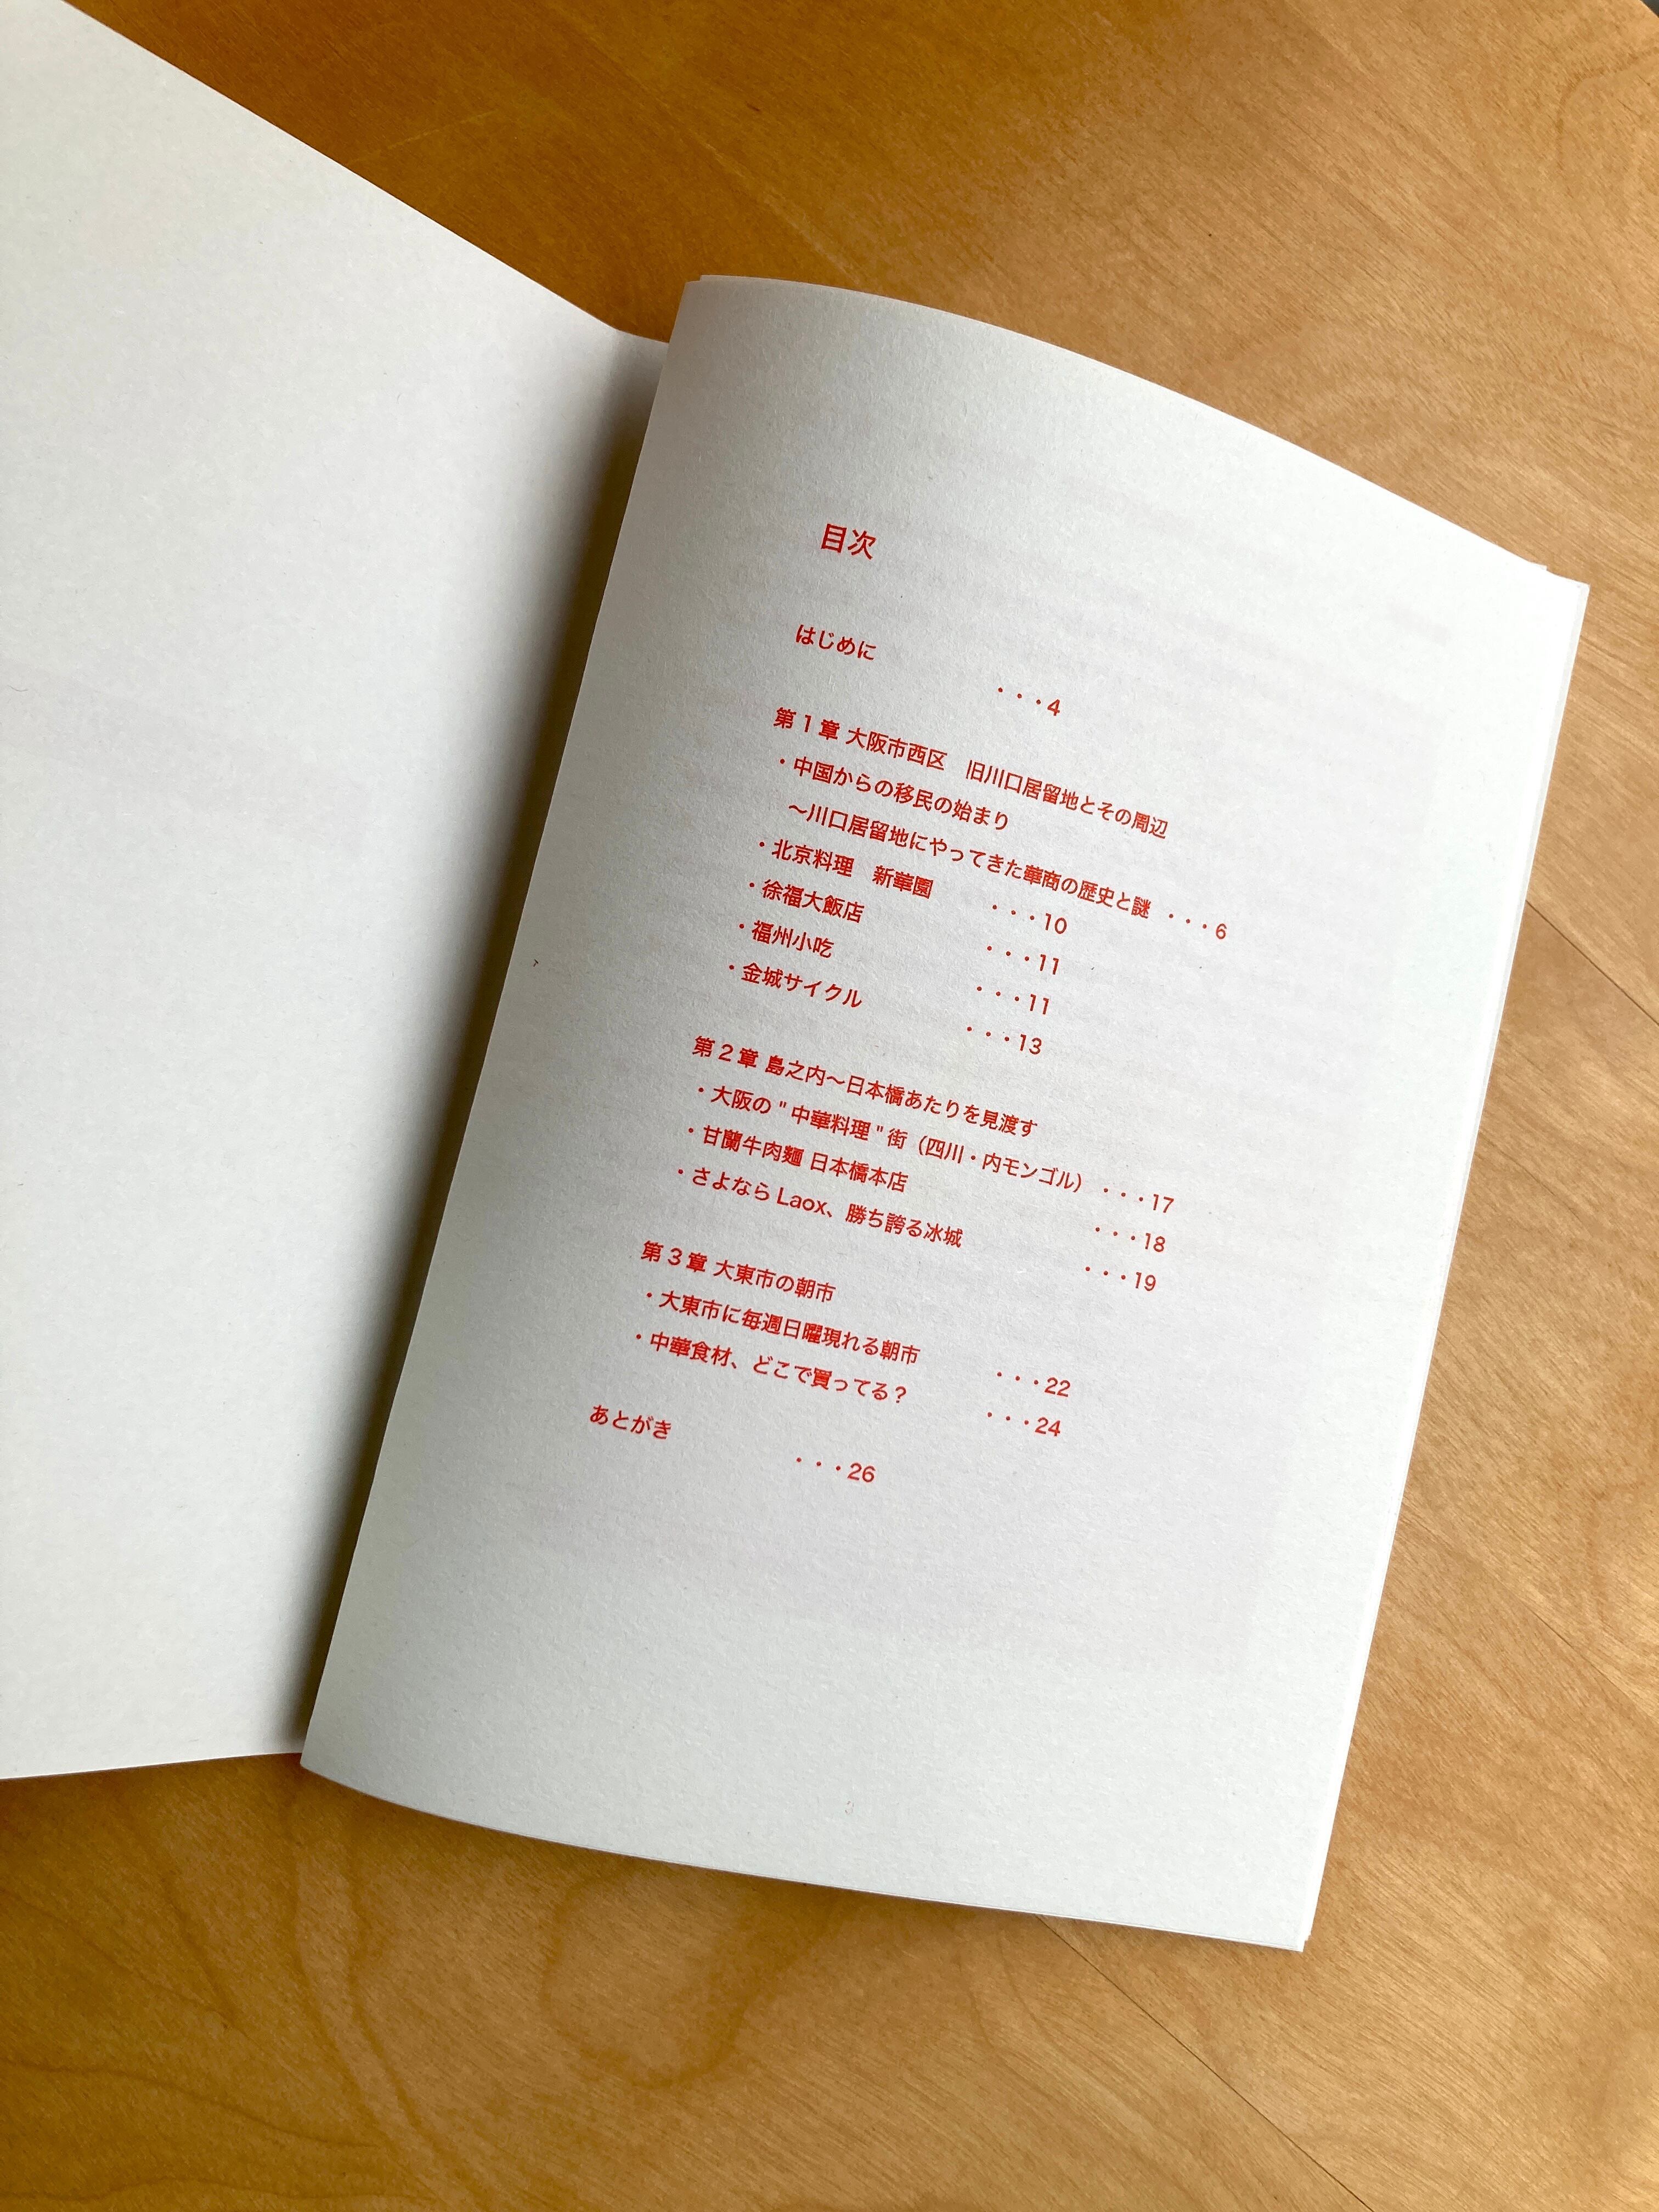 目次
はじめに ・・・4
第1章 大阪市西区　旧川口居留地とその周辺
・中国からの移民の始まり
～川口居留地にやってきた華商の歴史と謎 ・・・6
・北京料理　新華園 ・・・10
・徐福大飯店 ・・・11
・福州小吃 ・・・11
・金城サイクル ・・・13
第2章 島之内～日本橋あたりを見渡す
・大阪の"中華料理"街（四川・内モンゴル） ・・・17
・甘蘭牛肉麵 日本橋本店 ・・・18
・さよなら Laox、勝ち誇る冰城 ・・・19
第3章 大東市の朝市
・大東市に毎週日曜現れる朝市 ・・・22
・中華食材、どこで買ってる？ ・・・24
あとがき ・・・26